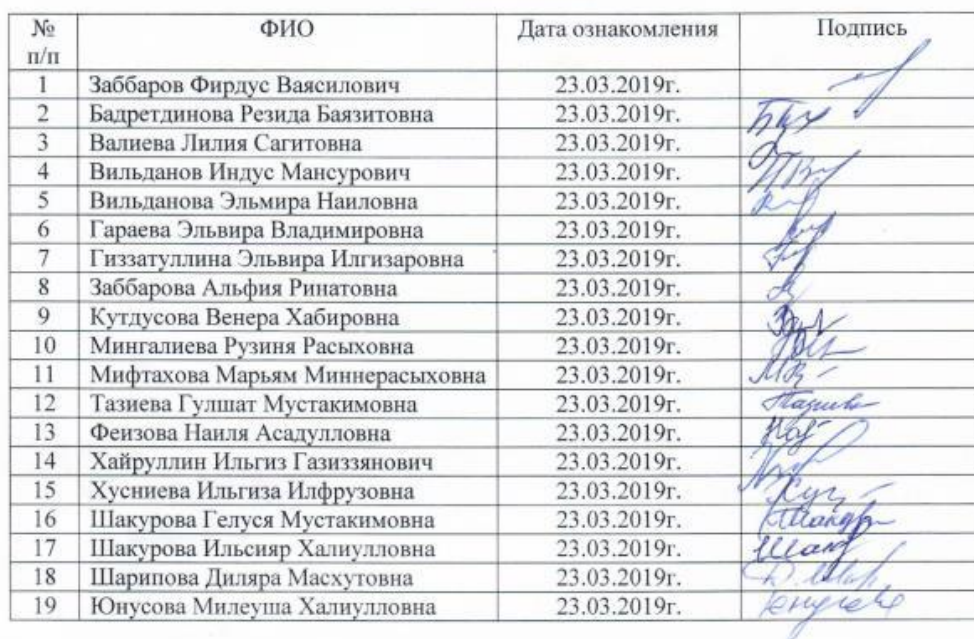 № п/п ФИО Дата ознакомления Подпись
1 Заббаров Фирдус Ваясилович 23.03.2019г.
2 Бадретдинова Резида Баязитовна 23.03.2019г.
3 Валиева Лилия Сагитовна 23.03.2019г.
4 Вильданов Индус Мансурович 23.03.2019г.
5 Вильданова Эльмира Наиловна 23.03.2019г.
6 Гараева Эльвира Владимировна 23.03.2019г.
7 Гиззатуллина Эльвира Илгизаровна 23.03.2019г.
8 Заббарова Альфия Ринатовна 23.03.2019г.
9 Кутдусова Венера Хабировна 23.03.2019г.
10 Мингалиева Рузиня Расыховна 23.03.2019г.
11 Мифтахова Марьям Миннерасыховна 23.03.2019г.
12 Тазиева Гулшат Мустакимовна 23.03.2019г.
13 Феизова Наиля Асадулловна 23.03.2019г.
14 Хайруллин Ильгиз Газиззянович 23.03.2019г.
15 Хусниева Ильгиза Илфрузовна 23.03.2019г.
16 Шакурова Гелуся Мустакимовна 23.03.2019г.
17 Шакурова Ильсияр Халиулловна 23.03.2019г.
18 Шарипова Диляра Масхутовна 23.03.2019г.
19 Юнусова Милеуша Халиулловна 23.03.2019г.